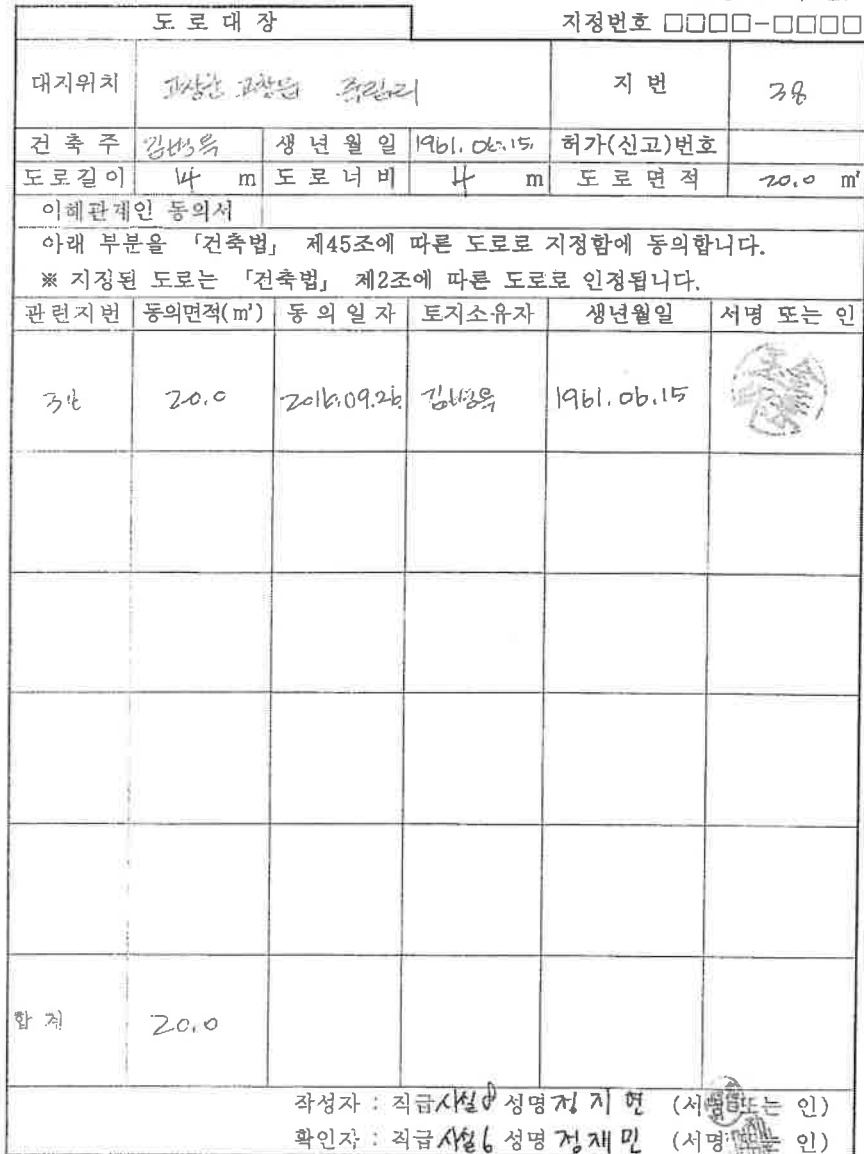 도 로 대 장
지정번호 □□□□-□□□□
대지위치 고창군 고창읍 죽림리 지 번 38
건 축 주 김병욱 생 년 월 일 1961. 06. 15. 허가(신고)번호
도로길이 14 m 도 로 너 비 4 m 도 로 면 적 20.0 ㎡
이해관계인 동의서
아래 부분을 「건축법」 제45조에 따른 도로로 지정함에 동의합니다.
※ 지정된 도로는 「건축법」 제2조에 따른 도로로 인정됩니다.
관련지번 동의면적(㎡) 동 의 일 자 토지소유자 생년월일 서명 또는 인
38 20.0 2016.09.26. 김병욱 1961.06.15
합 계 20.0
작성자 : 직급 시설8 성명 정지현 (서명 또는 인)
확인자 : 직급 시설6 성명 정재민 (서명 또는 인)